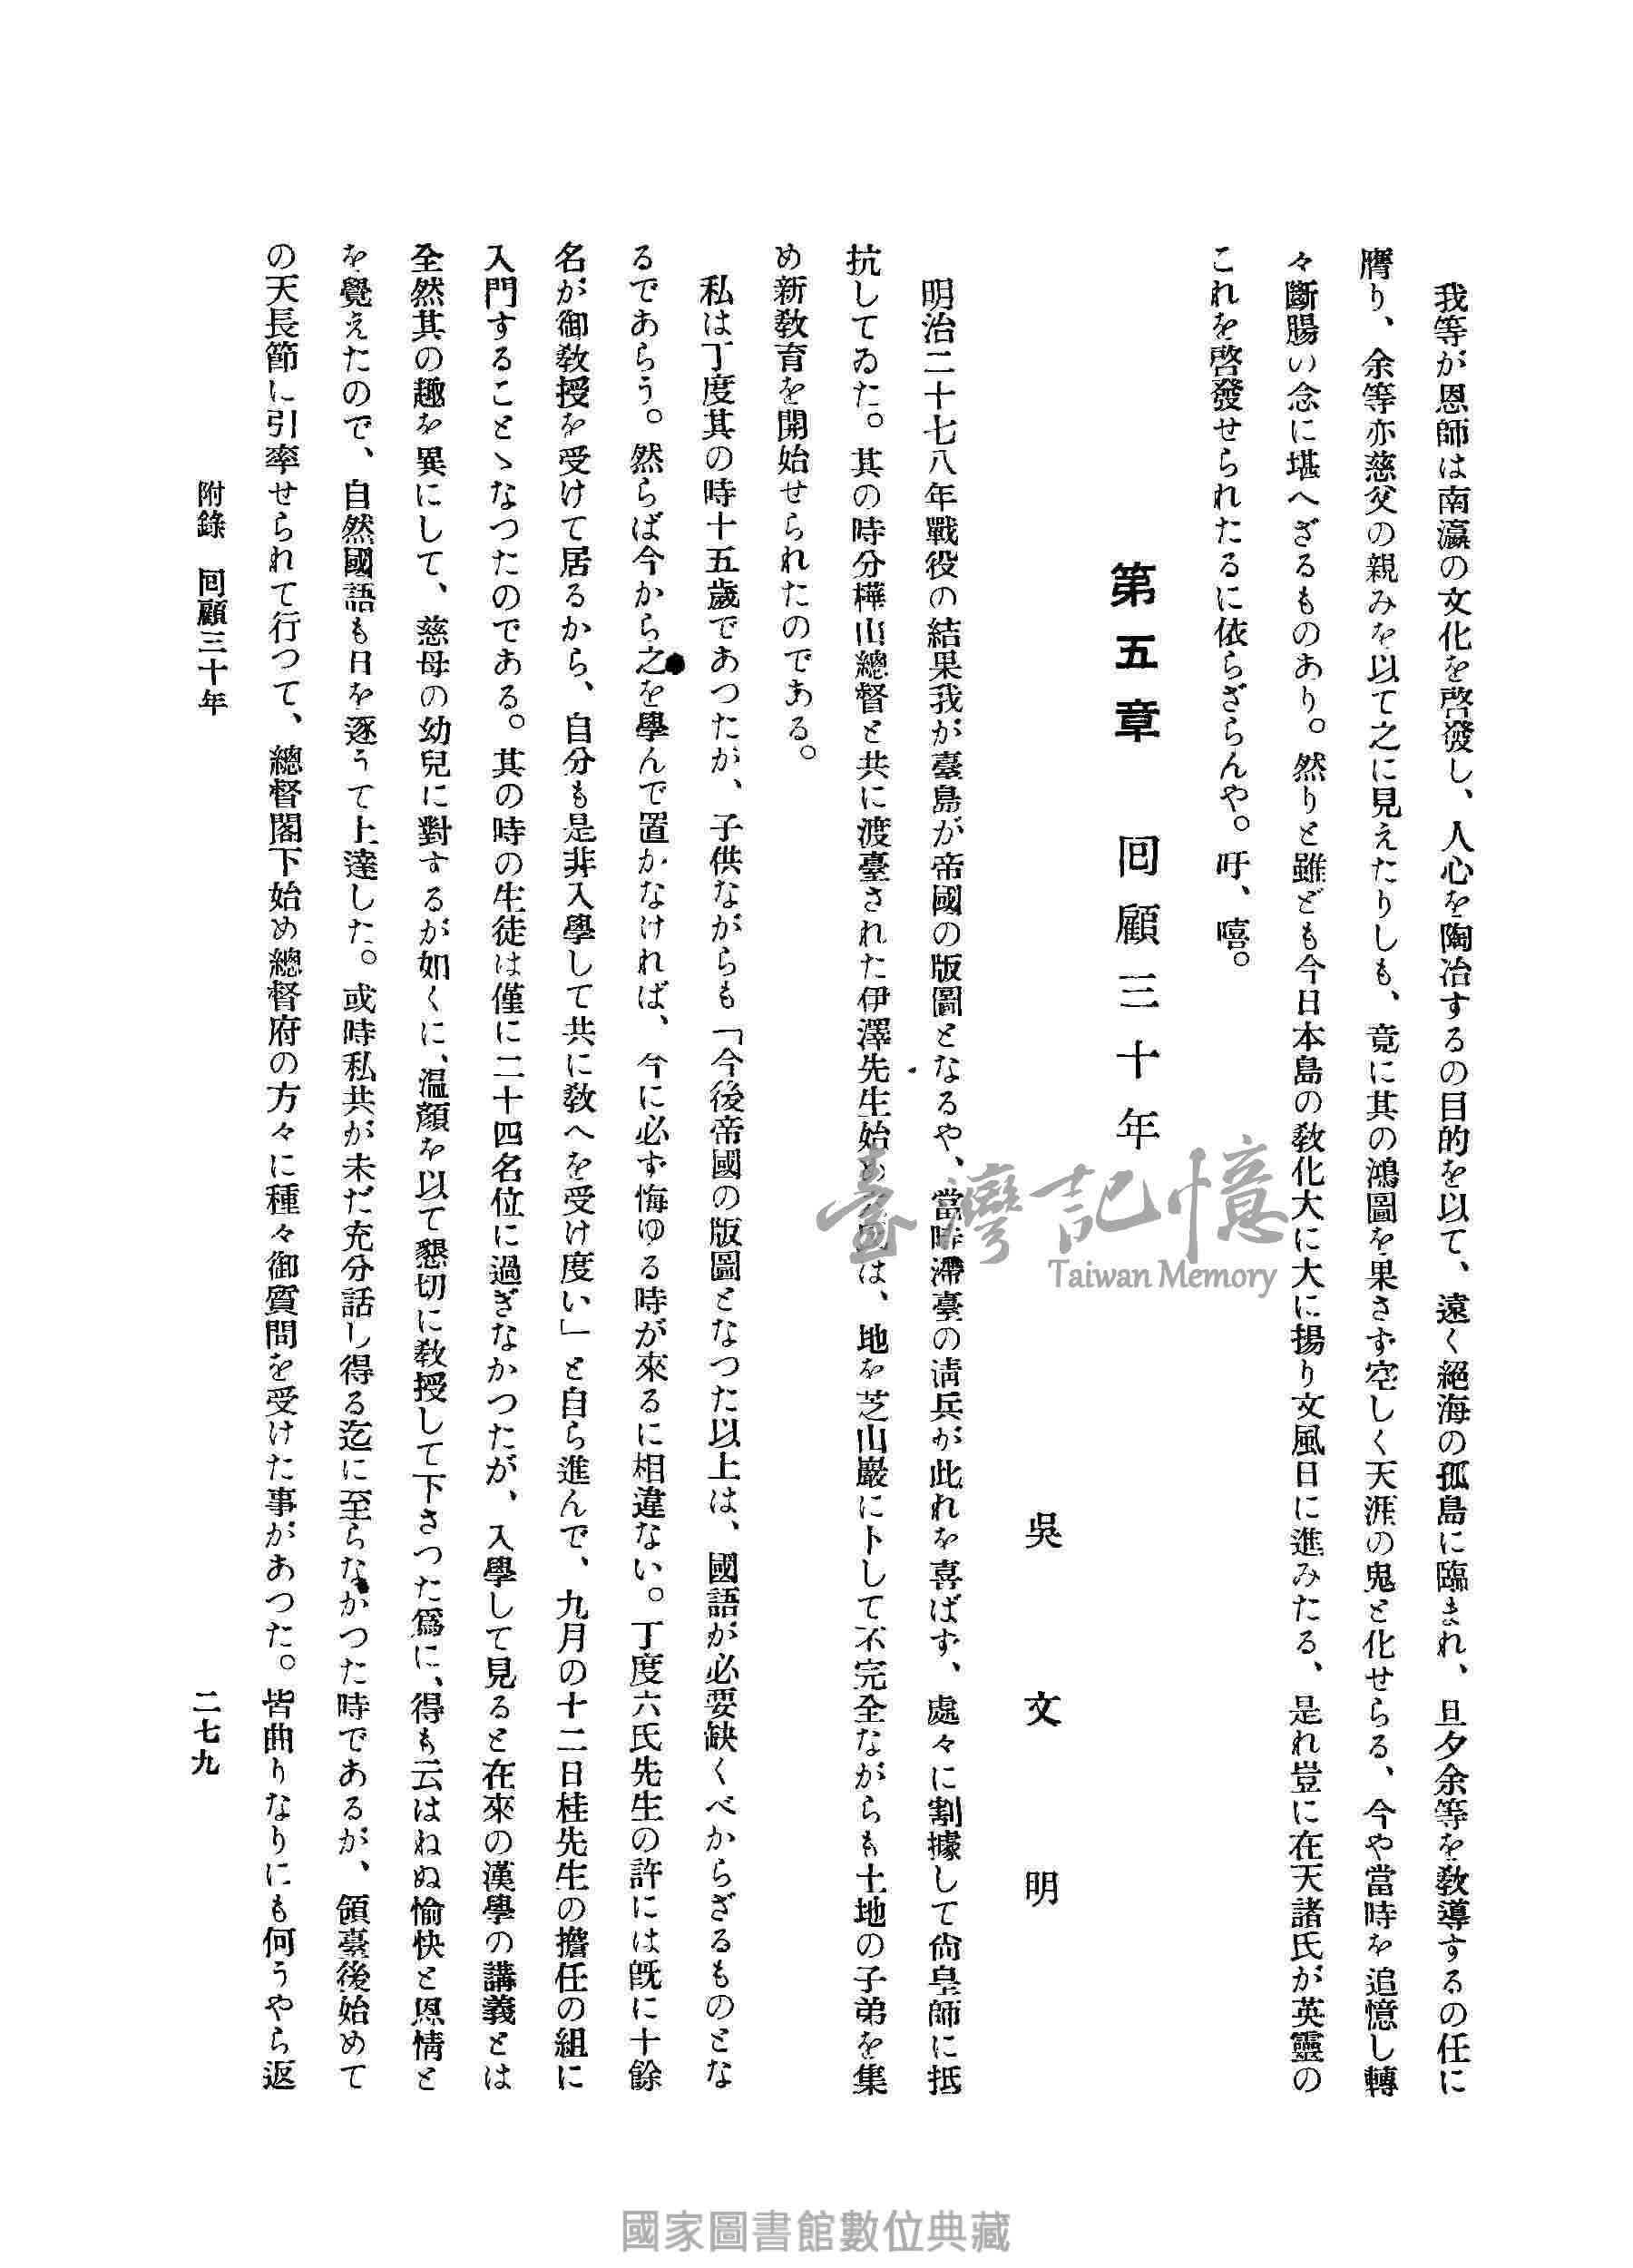 我等が恩師は南瀛の文化を啓發し、人心を陶冶するの目的を以て、遠く絕海の孤島に臨まれ、旦夕余等を敎導するの任に
膺り、余等亦慈父の親みを以て之に見えたりしも、竟に其の鴻圖を果さず空しく天涯の鬼と化せらる、今や當時を追憶し轉
々斷腸い念に堪へざるものあり。然りと雖ども今日本島の敎化大に大に揚り文風日に進みたる、是れ豈に在天諸氏が英靈の
これを啓發せられたるに依らざらんや。吁、嘻。
第五章 回顧三十年
吳文明
明治二十七八年戰役の結果我が臺島が帝國の版圖となるや、當時滯臺の淸兵が此れを喜ばず、處々に割據して尙皇師に抵
抗してゐた。其の時分樺山總督と共に渡臺された伊澤先生始め は、地を芝山巖に卜して不完全ながらも土地の子弟を集
め新敎育を開始せられたのである。
私は丁度其の時十五歲であつたが、子供ながらも「今後帝國の版圖となつた以上は、國語が必要缺くべからざるものとな
るであらう。然らば今から之を學んで置かなければ、今に必ず悔ゆる時が來るに相違ない。丁度六氏先生の許には旣に十餘
名が御敎授を受けて居るから、自分も是非入學して共に敎へを受け度い」と自ら進んで、九月の十二日桂先生の擔任の組に
入門することゝなつたのである。其の時の生徒は僅に二十四名位に過ぎなかつたが、入學して見ると在來の漢學の講義とは
全然其の趣を異にして、慈母の幼兒に對するが如くに、溫顏を以て懇切に敎授して下さつた爲に、得も云はねぬ愉快と恩情と
を覺えたので、自然國語も日を逐うて上達した。或時私共が未だ充分話し得る迄に至らなかつた時であるが、領臺後始めて
の天長節に引率せられて行つて、總督閣下始め總督府の方々に種々御質問を受けた事があつた。皆曲りなりにも何うやら返
附錄 回顧三十年
二七九
臺灣記憶
Taiwan Memory
國家圖書館數位典藏